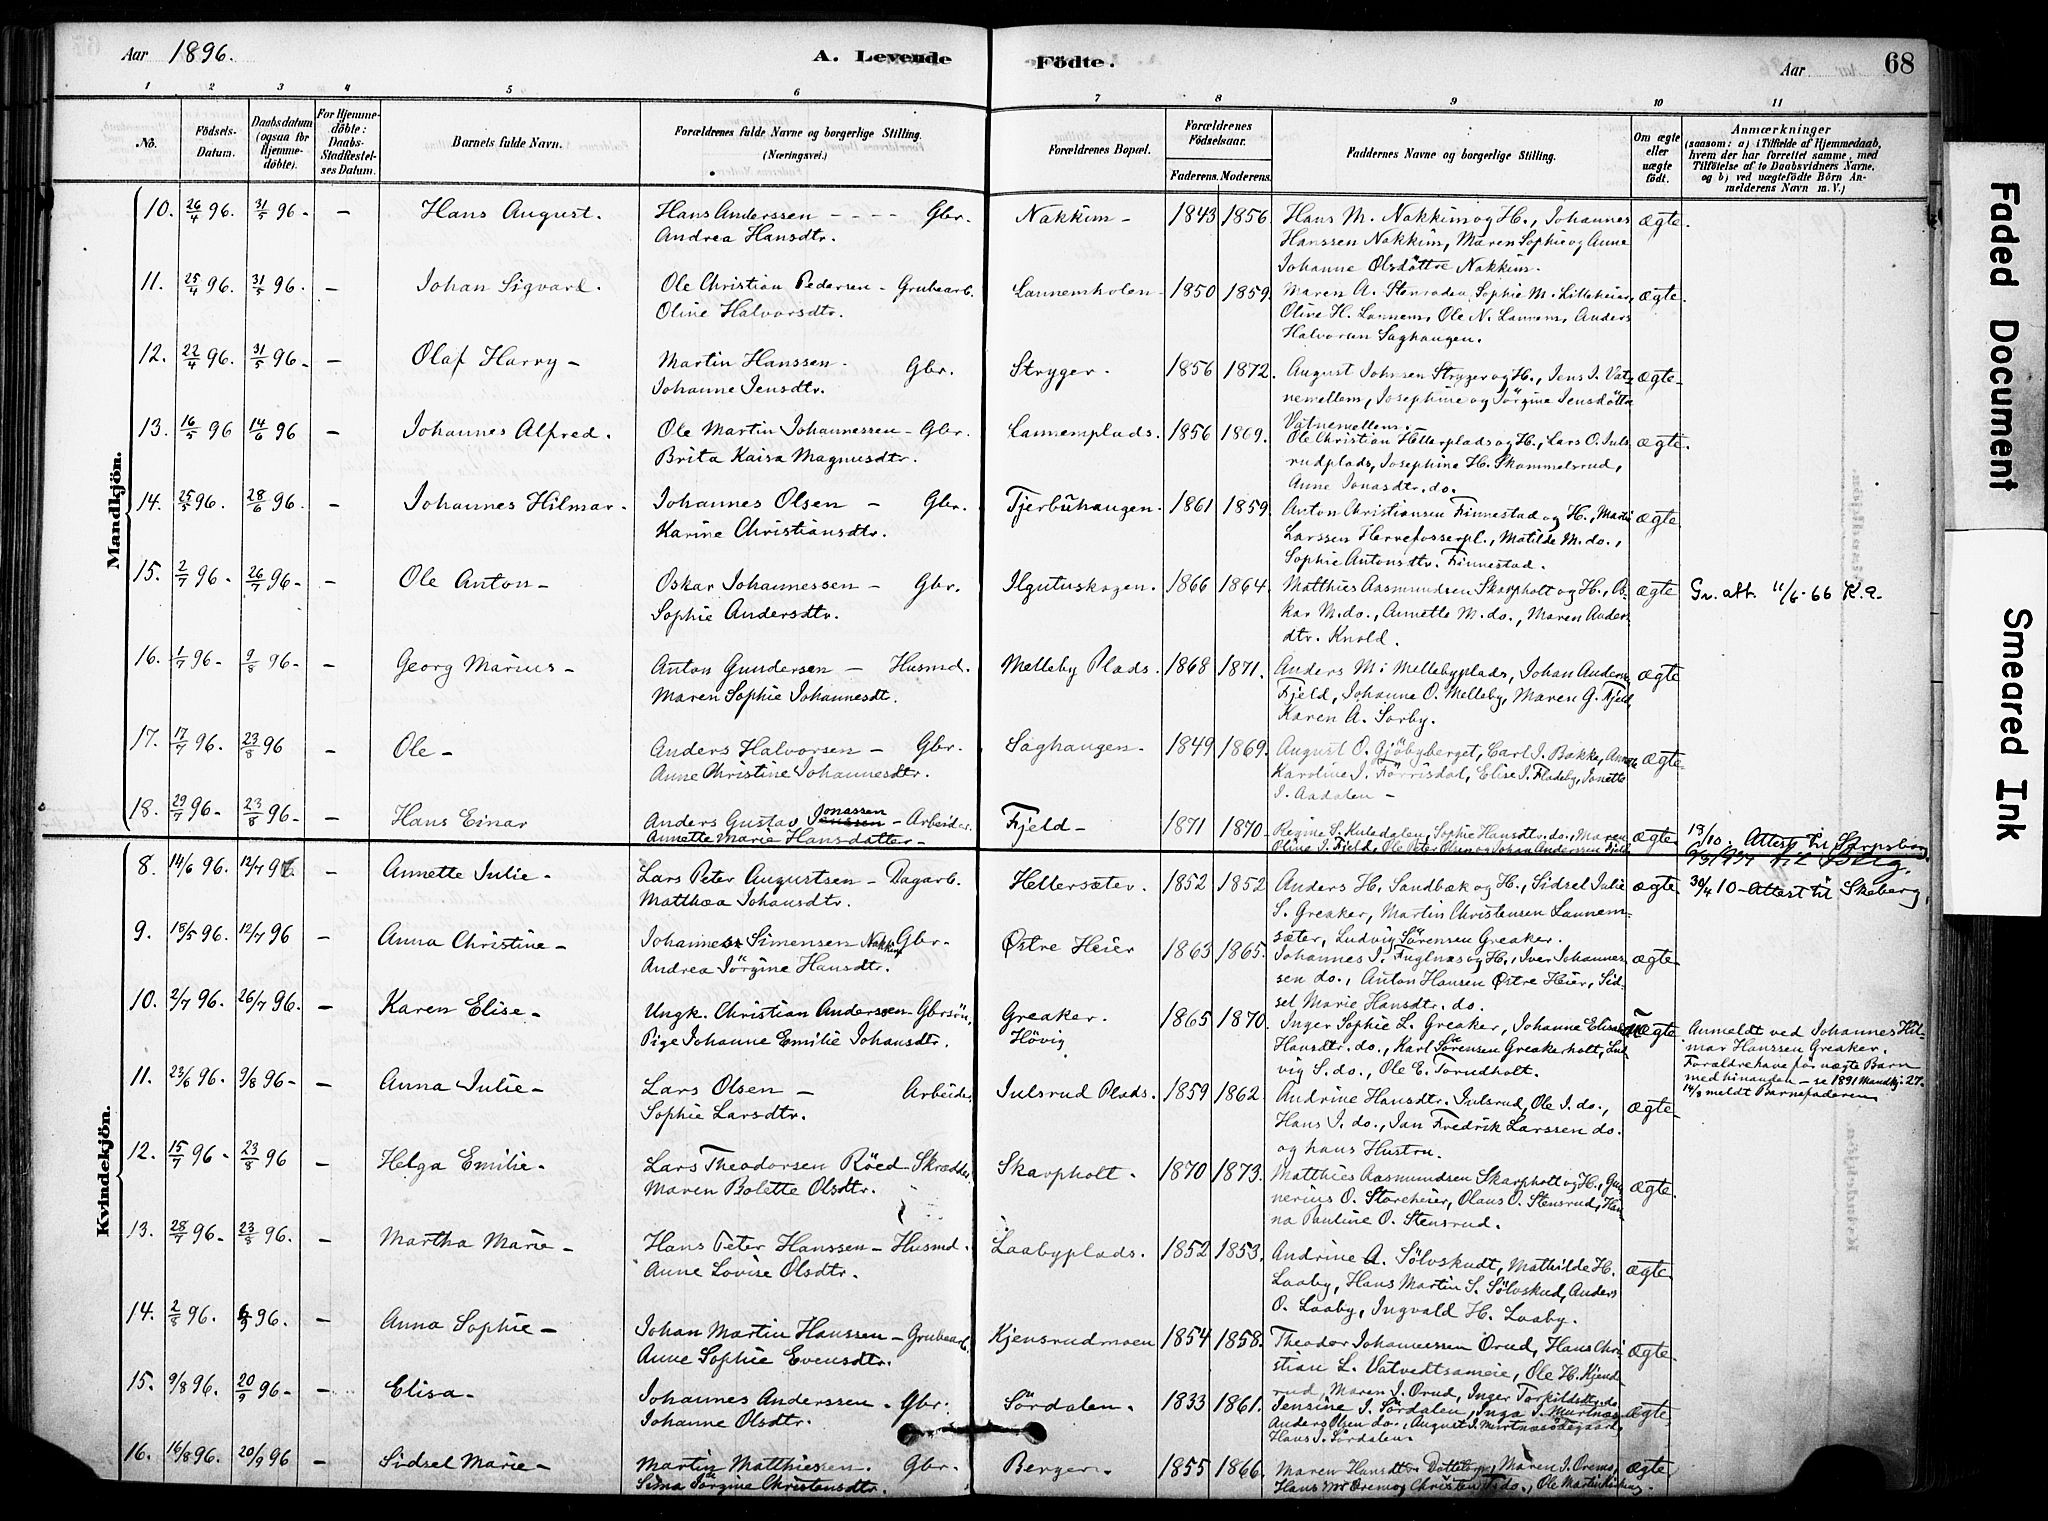 Aar 1896.
A. Levende Födte.
Aar 68
1 2 3 4 5 6 7 8 9 10 11
No. Födsels-Datum. Daabsdatum (ogsaa for Hjemme-döbte). For Hjemme-döbte: Daabs-Stadfæstel-ses Datum. Barnets fulde Navn. Forældrenes fulde Navne og borgerlige Stilling. (Næringsvei.) Forældrenes Bopæl. Forældrenes Födselsaar. Faderens. Moderens. Faddernes Navne og borgerlige Stilling. Om ægte eller uægte födt. Anmærkninger (saasom: a) i Tilfælde af Hjemmedaab, hvem der har forrettet samme, med Tilföielse af to Daabsvidners Navne, og b) ved uægtefödte Börn An-melderens Navn m. V.)
Mandkjön.
10. 26/4 96. 31/5 96. – Hans August. Hans Anderssen – Gbr. Nakkim – 1843 1856 Hans M. Nakkim og H., Johannes ægte.
Andrea Hansdtr. Hanssen Nakkim, Maren Sophie og Anne
Johanne Olsdöttre Nakkim.
11. 25/4 96. 31/5 96. – Johan Sigvard. Ole Christian Pedersen – Grubearb. Lannemholen – 1850 1859. Maren A. Stensden, Sophie M. Lilleheier, ægte.
Oline Halvorsdtr. Oline H. Lannem, Ole N. Lannem, Anders
Halvorsen Saghaugen.
12. 22/4 96. 31/5 96. – Olaf Harry – Martin Hanssen – Gbr. Stryger. 1856 1872. August Johnsen Stryger og H., Jens J. Vat- ægte –
Johanne Jensdtr. nemellem, Josephine og Jörgine Jensdöttre
Vatnemellem. –
13. 16/5 96 14/6 96 – Johannes Alfred. Ole Martin Johannessen – Gbr. Lannemplads. 1856 1869. Ole Christian Hellerplads og H., Lars O. Juls- ægte.
Brita Kaisa Magnusdtr. rudplads, Josephine H. Skammelsrud,
Anne Jonasdtr. do.
14. 25/5 96. 28/6 96. – Johannes Hilmar. Johannes Olsen – Gbr. Tjerbuhaugen. 1861 1859. Anton Christiansen Finnestad og H., Martin ægte
Karine Christiansdtr. Larssen Herrefosserpl., Matilde M. do.,
Sophie Antonsdtr. Finnestad.
15. 2/7 96. 26/7 96 – – Ole Anton – Oskar Johannessen – Gbr. Ilgutuskogen. 1866 1864. Matthies Aasmundsen Skarpholt og H., Os- ægte Gv. att. 11/6-66 K.a.
Sophie Andersdtr. kar M. do., Annette M. do., Maren Anders-
dtr. Knold.
16. 1/7 96 – 9/8 96 – – Georg Marius – Anton Gundersen – Husmd. Melleby Plads. 1868 1871. Anders M. i Mellebyplads, Johan Anders. ægte
Maren Sophie Johannesdt. Fjeld, Johanne O. Melleby, Maren G. Fjeld,
Karen A. Sorby.
17. 17/7 96. 23/8 96 – Ole – Anders Halvorsen – Gbr. Saghaugen – 1849 1869. August O. Gjöbyberget, Carl J. Bakke, Annette ægte –
Anne Christine Johannesdtr. Karoline J. Förrisdal, Elise J. Fladeby, Janette
J. Aadalen –
18. 29/7 96 – 23/8 96 – – Hans Einar Anders Gustav Jonassen – Arbeider. Fjeld – 1871 1870 – Regine S. Kulsdalen, Sophie Hansdtr. do., Maren ægte 13/10 Attest til Sarpsborg.
Annette Marie Hansdatter – Oline J. Fjeld, Ole Peter Olsen og Johan Anderssen Fjeld
Kvindekjön.
8. 14/6 96. 12/7 96. – Annette Julie – Lars Peter Augustsen – Dagarb. Hellersæter. 1852 1852 Anders H. Sandbæk og H., Sidsel Julie ægte 30/4 10 – Attest til Skeberg.
Matthea Johansdtr. S. Greaker, Martin Christensen Lannem-
sæter, Ludvig Sörensen Greaker.
9. 18/5 96. 12/7 96 – Anna Christine – Johannes Simensen Nakkim Gbr. Østre Heier 1863 1865. Johannes J. Fuglnæs og H., Iver Johannes- ægte
Andrea Jörgine Hansdtr. sen do., Anton Hansen Østre Heier, Sid-
sel Marie Hansdtr. do.
10. 2/7 96. 26/7 96. – Karen Elise – Ungk. Christian Anderssen – Gbrsön, Greaker. 1865 1870. Inger Sophie L. Greaker, Johanne Elise uægte Anmeldt ved Johannes Hil-
Pige Johanne Emilie Johansdtr. Hövig Hansdtr. do., Karl Sörensen Greakerholt, Lud- mar Hanssen Greaker.
vig S. do., Ole E. Torudholt. Forældre have før uægte Barn
med hinanden – se 1891 Mandkj. 27.
14/9 meldt Barnefaderen
11. 23/6 96. 9/8 96 – – Anna Julie – Lars Olsen – Arbeider. Julsrud Plads. 1859 1862 Andrine Hansdtr. Julsrud, Ole J. do., ægte
Sophie Larsdtr. Hans J. do., Jan Fredrik Larssen do.
og hans Hustru.
12. 15/7 96 – 23/8 96 – Helga Emilie. Lars Theodorsen Röed – Skrædder. Skarpholt. 1870 1873. Matthies Aasmundsen Skarpholt og H., Gun- ægte
Maren Bolette Olsdtr. nerius O. Storeheier, Olaus O. Stensrud, Han-
na Pauline O. Stensrud.
13. 28/7 96. 23/8 96. – Martha Marie – Hans Peter Hanssen – Husmd. Laabyplads. 1852 1853. Andrine A. Sölvskudt, Mathilde H. ægte
Anne Lovise Olsdtr. Laaby, Hans Martin S. Sölvskud, Anders
O. Laaby, Ingvald H. Laaby.
14. 2/8 96. 6/9 96. – Anna Sophie – Johan Martin Hanssen – Grubearb. Kjensrudmoen 1854 1858. Theodor Johannessen Orud, Hans Chri- ægte
Anne Sophie Evensdtr. stian L. Vatvedtsameie, Ole H. Kjend-
rud, Maren J. Orud, Inger Torkildsdtr. do.
15. 9/8 96. 20/9 96 – – Elisa – Johannes Anderssen – Gbr. Sördalen. 1833 1861. Jensine J. Sördalen, Inga J. Murtnæs ægte
Johanne Olsdtr. Anders Olsen do., August J. Murtnæsödegaard,
Hans J. Sördalen.
16. 16/8 96. 20/9 96 – Sidsel Marie – Martin Matthiessen. Gbr. Berger. 1855 1866. Maren Hansdtr. Dottetorp, Maren J. Oremo, ægte
Sina Jörgine Christensdtr. Hans Mr Oremo, Christen do., Ole Martin
Faded Document
Smeared Ink